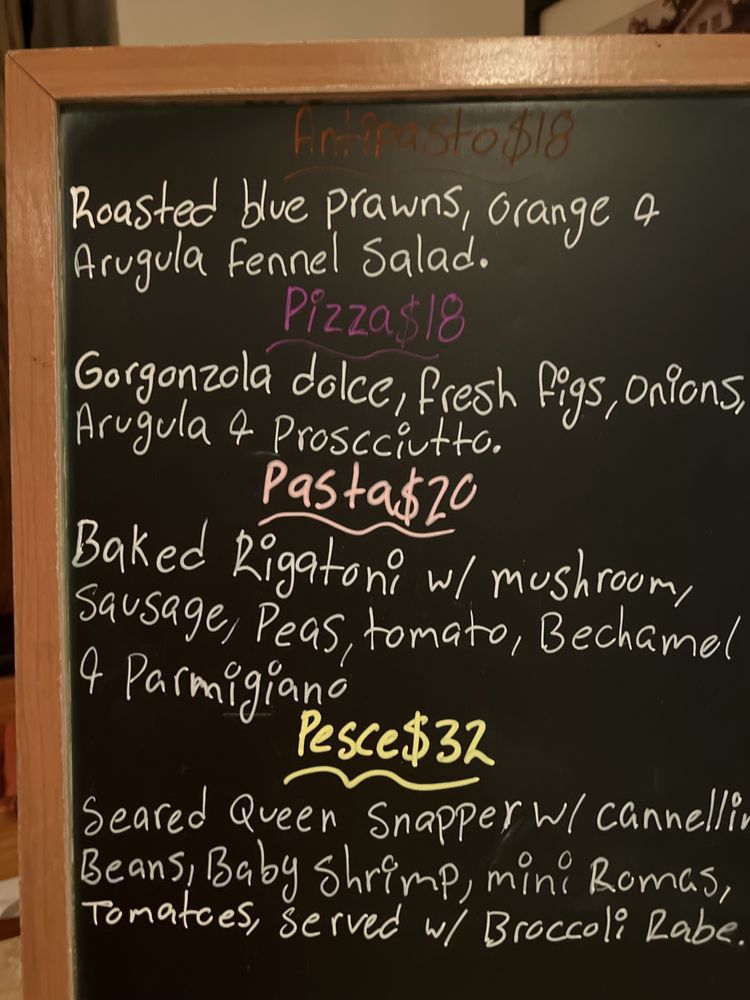 Antipasto $18
Roasted blue prawns, orange &
Arugula fennel Salad.
Pizza $18
Gorgonzola dolce, fresh figs, onions,
Arugula & Proscciutto.
Pasta $20
Baked Rigatoni w/ mushroom,
Sausage, Peas, tomato, Bechamel
& Parmigiano
Pesce $32
Seared Queen Snapper w/ cannellin
Beans, Baby Shrimp, mini Romas,
Tomatoes, Served w/ Broccoli Rabe.